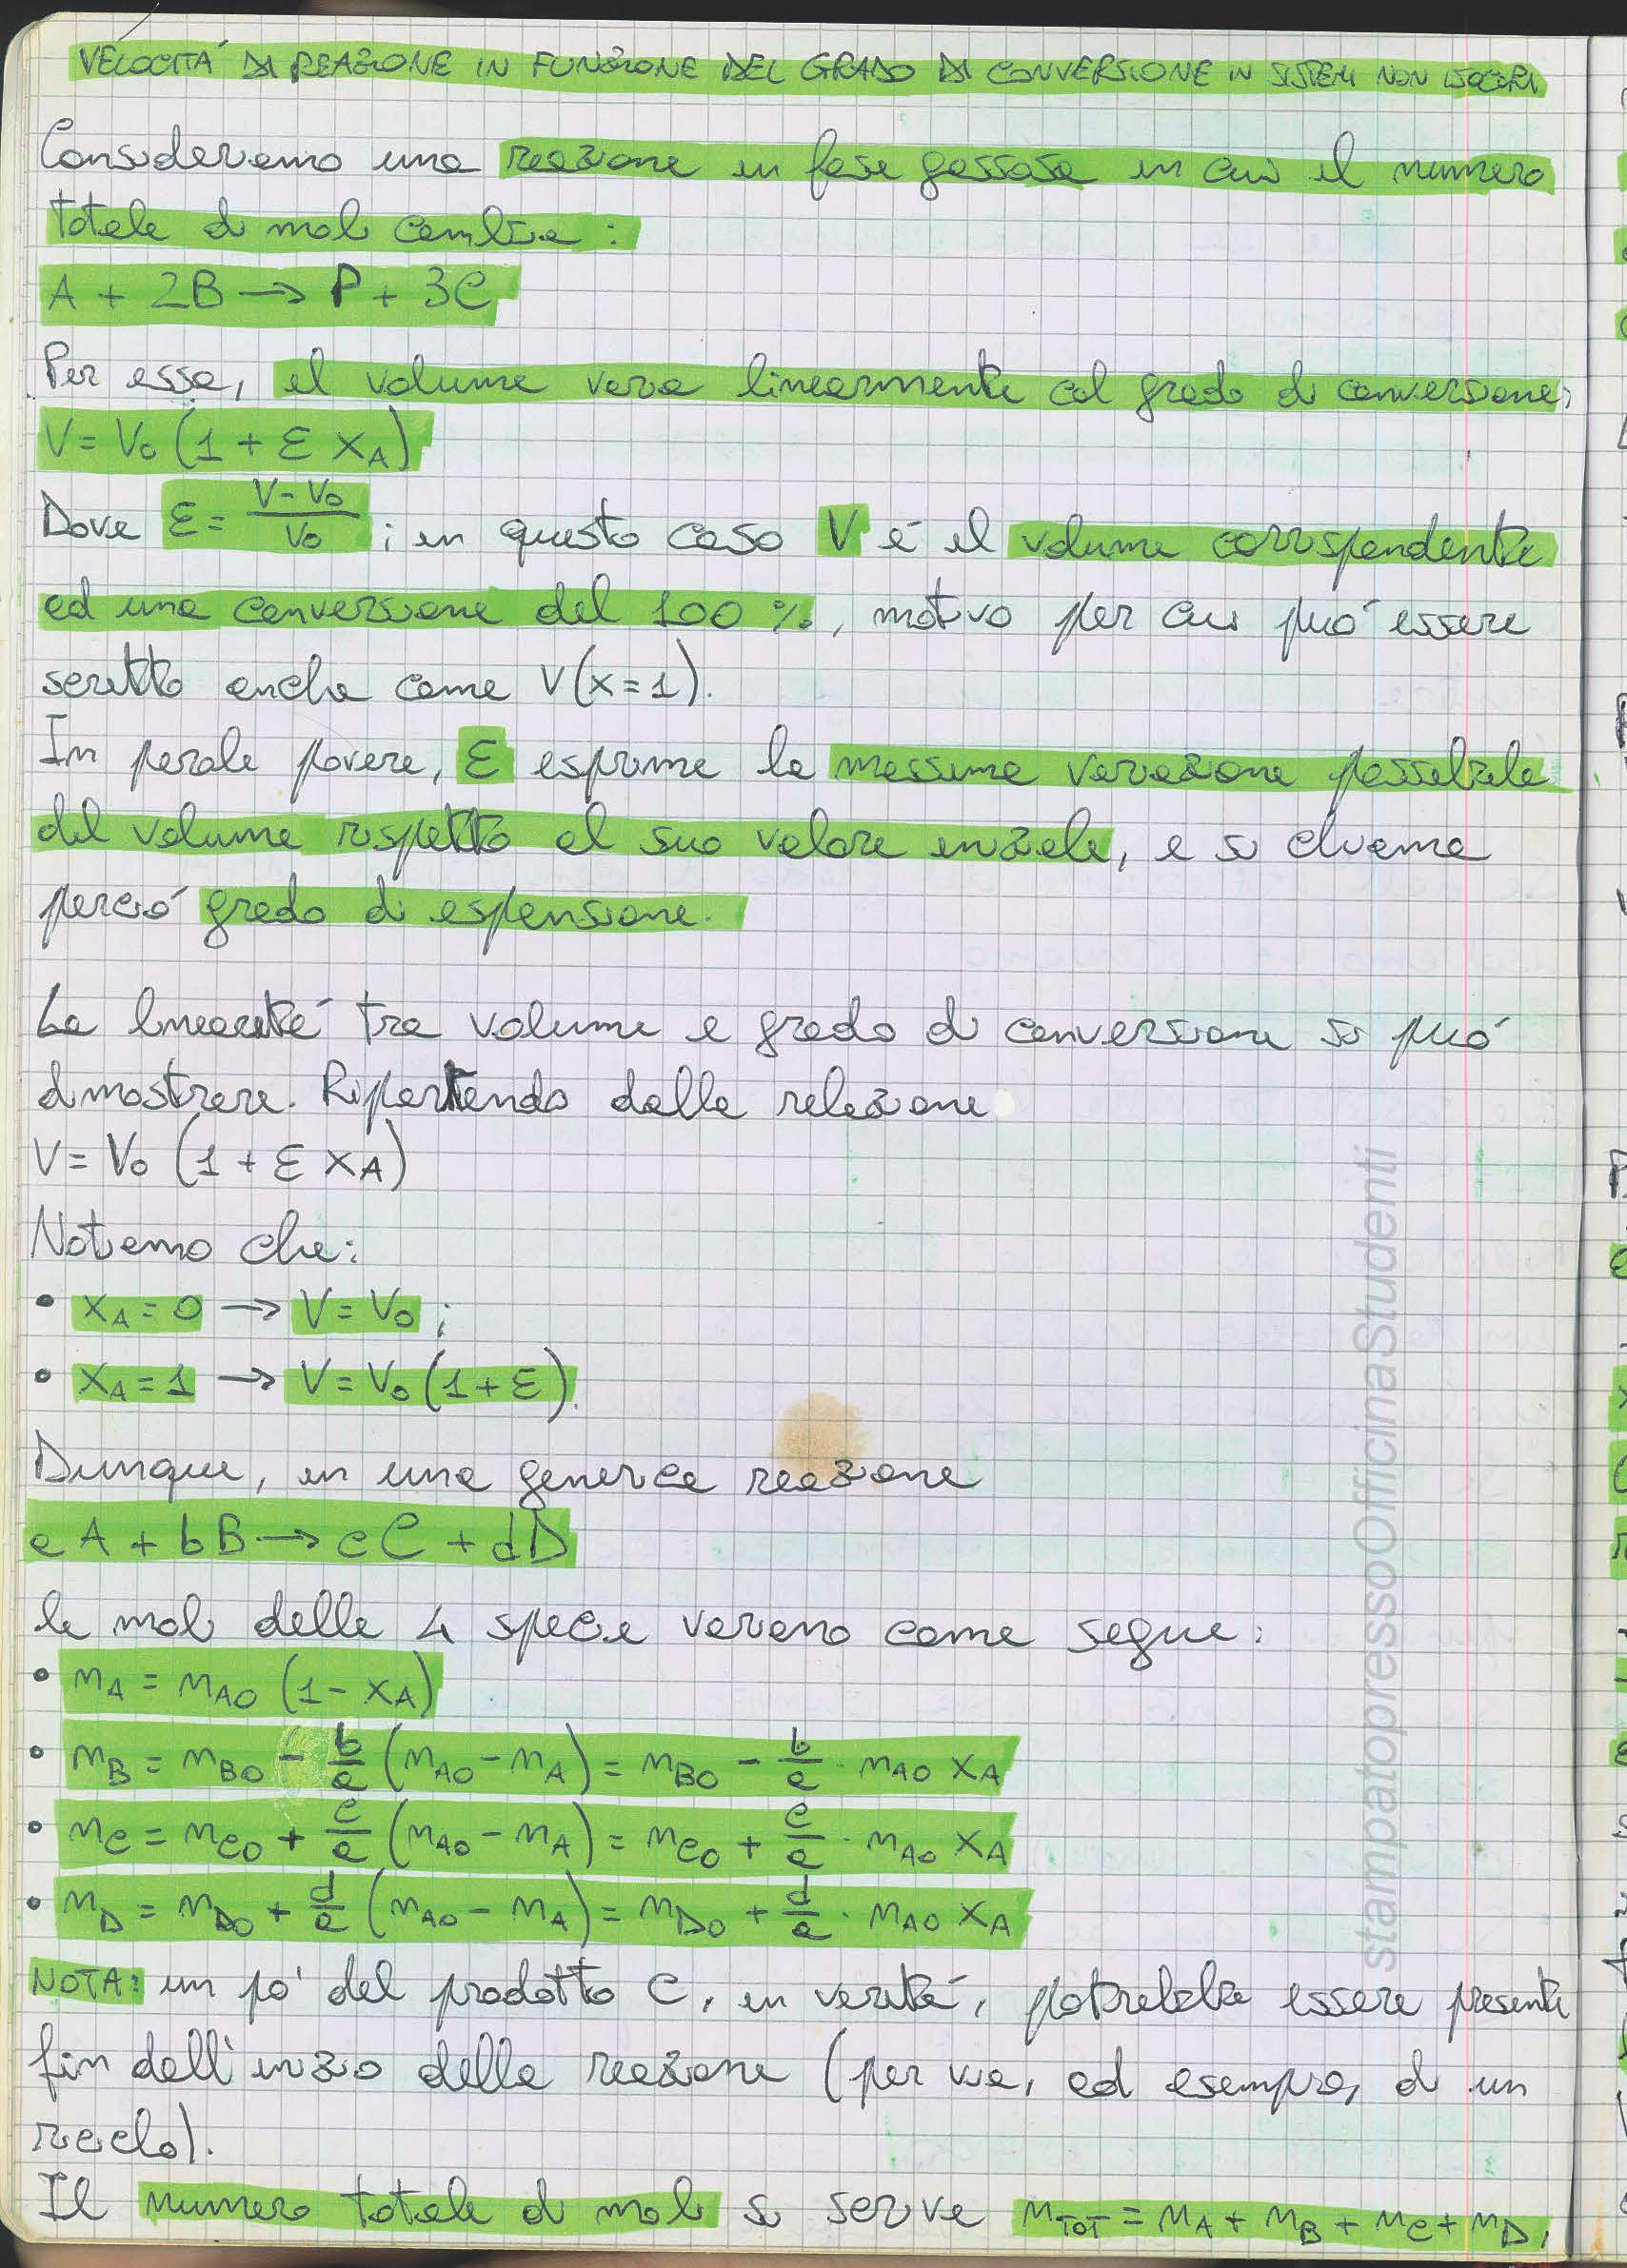 VELOCITÁ DI REAZIONE IN FUNZIONE DEL GRADO DI CONVERSIONE IN SISTEMI NON ISOCORI
Consideriamo una reazione in fase gassosa in cui il numero
totale di moli cambia:
A + 2B → P + 3C
Per essa, il volume varia linearmente col grado di conversione:
V = V₀ (1 + ε X_A)
Dove ε = (V - V₀)/V₀ ; in questo caso V é il volume corrispondente
ad una conversione del 100 %, motivo per cui puó essere
scritto anche come V(x=1).
In parole povere, ε esprime la massima variazione possibile
del volume rispetto al suo valore iniziale, e si chiama
perció grado di espansione.
La linearitá tra volume e grado di conversione si puó
dimostrare. Ripartendo dalla relazione
V = V₀ (1 + ε X_A)
Notiamo che:
• X_A = 0 → V = V₀ ;
• X_A = 1 → V = V₀ (1 + ε).
Dunque, in una generica reazione
aA + bB → cC + dD
le moli delle 4 specie variano come segue:
• n_A = n_A0 (1 - X_A)
• n_B = n_B0 - b/a (n_A0 - n_A) = n_B0 - b/a · n_A0 X_A
• n_C = n_C0 + c/a (n_A0 - n_A) = n_C0 + c/a · n_A0 X_A
• n_D = n_D0 + d/a (n_A0 - n_A) = n_D0 + d/a · n_A0 X_A
NOTA: un po' del prodotto C, in veritá, potrebbe essere presente
fin dall'inizio della reazione (per via, ad esempio, di un
riciclo).
Il numero totale di moli si scrive n_TOT = n_A + n_B + n_C + n_D,
stampatopressoOfficinaStudenti